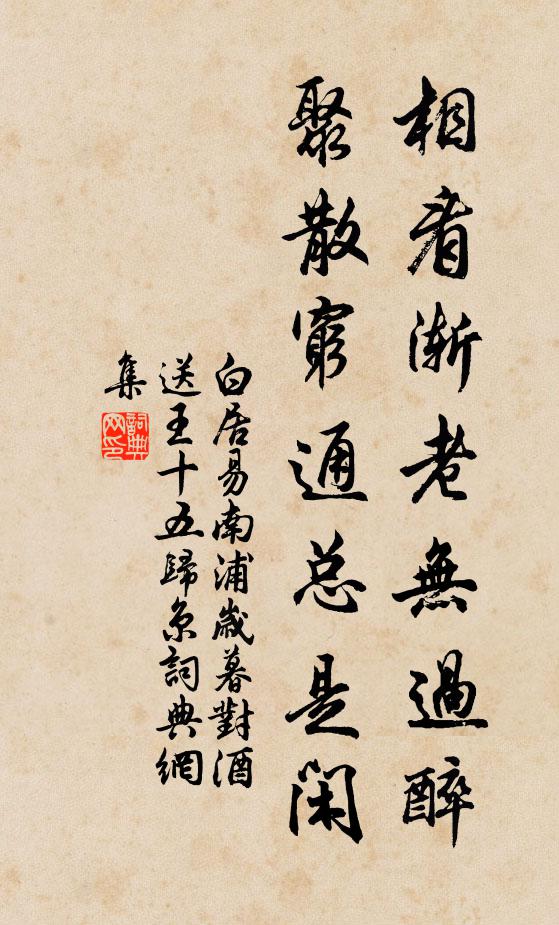 相看漸老無過醉
聚散窮通总是閑
白居易南浦歲暮對酒
送王十五歸京詞典網
集
詞典
网印